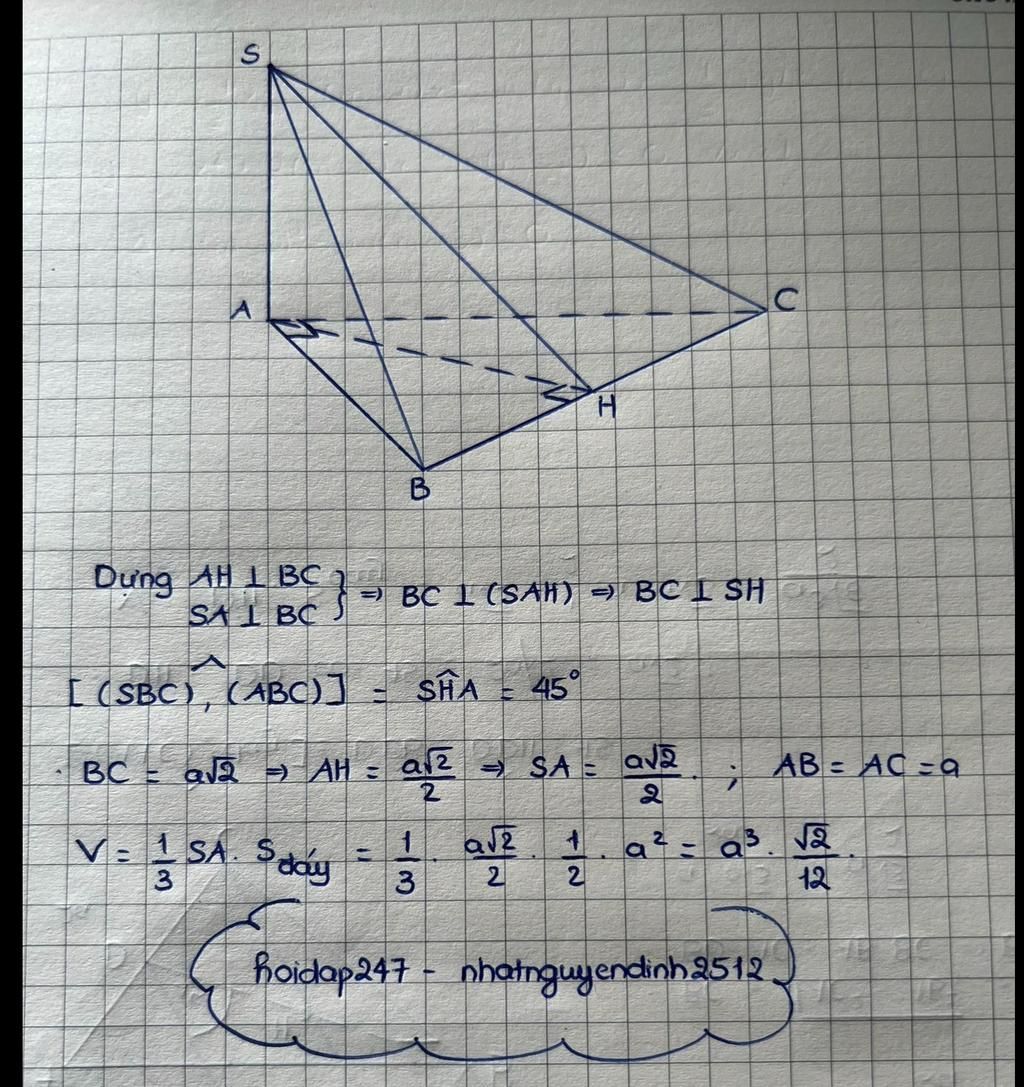 S
A
C
H
B
Dựng AH ⊥ BC
SA ⊥ BC } ⇒ BC ⊥ (SAH) ⇒ BC ⊥ SH
[(SBC)^, (ABC)] = SĤA = 45°
· BC = a√2 ⇒ AH = a√2/2 ⇒ SA = a√2/2 . ; AB = AC = a
V = 1/3 SA. S đáy = 1/3 . a√2/2 . 1/2 . a² = a³ . √2/12 .
hoidap247 - nhatnguyendinh2512